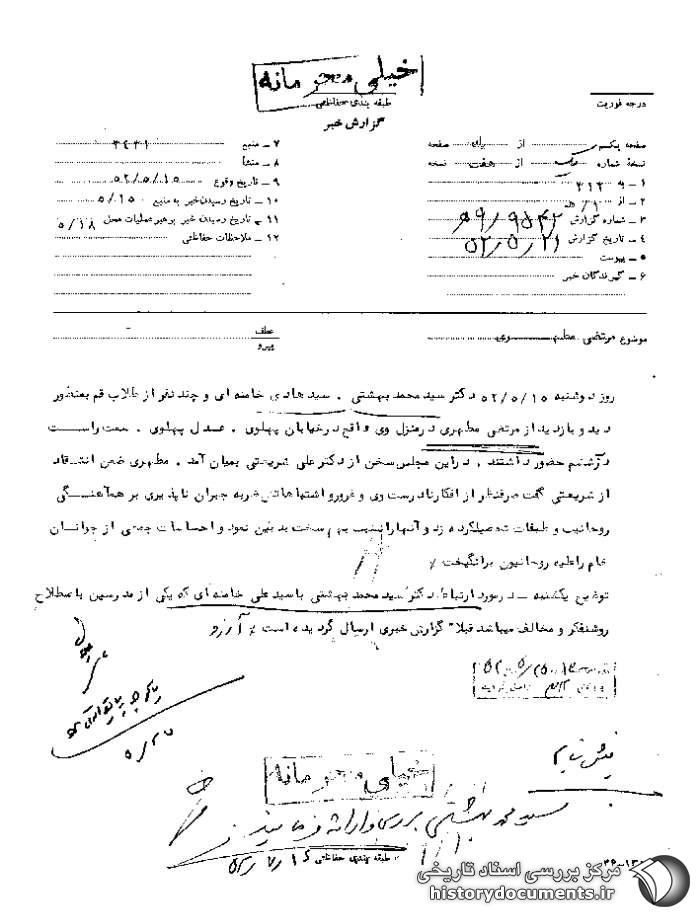 خیلی محرمانه
طبقه بندی حفاظتی
درجه فوریت
گزارش خبر
صفحه یکم از یک صفحه
نسخه شماره یک از هفت نسخه
۱ - به ۳۱۲
۲ - از
۳ - شماره گزارش
۴ - تاریخ گزارش ۵۲/۵/۲۱
۵ - پیوست
۶ - گیرندگان خبر
۷ - منبع ۳۴۳۱
۸ - منشأ
۹ - تاریخ وقوع ۵۲/۵/۱۵
۱۰ - تاریخ رسیدن خبر به منبع ۵/۱۵
۱۱ - تاریخ رسیدن خبر برهبر عملیات محل ۵/۱۸
۱۲ - ملاحظات حفاظتی
موضوع مرتضی مطهــری
عطف
پیرو
روز دوشنبه ۵۲/۵/۱۵ دکتر سید محمد بهشتی ، سید هادی خامنه ای و چند نفر از طلاب قم بمنظور
دید و بازدید از مرتضی مطهری در منزل وی واقع در خیابان پهلوی ، عدل پهلوی ، سمت راســت
حضور داشتند . در این مجلس سخن از دکتر علی شریعتی بمیان آمد ، مطهری ضمن انتــقاد
از شریعتی گفت صرفنظر از افکار نادرست وی و غرور و اشتباهاتش ضربه جبران ناپذیری بر هماهنــگی
روحانیت و طبقات تحصیلکرده زد و آنها را نسبت بهم سخت بدبین نمود و احساسات جمعی از جوانــان
خام را علیه روحانیون برانگیخت ٪
توضیح یکشنبه - در مورد ارتباط دکتر سید محمد بهشتی با سید علی خامنه ای که یکی از مدرسین باصطلاح
روشنفکر و مخالف میباشد قبلا" گزارش خبری ارسال گردیده است ٪ آرزو
۵/۲۰
خیلی محرمانه
سید محمد بهشتی بررسی و ارائه فرمایید
طبقه بندی حفاظتی
مرکز بررسی اسناد تاریخی
historydocuments.ir